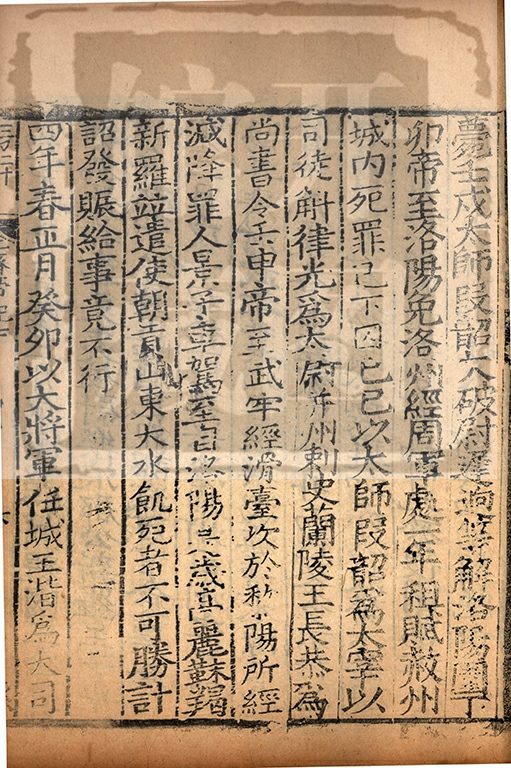 薨壬戌太師段韶大破尉遲迥等解洛陽圍丁
卯帝至洛陽免洛州經周軍處一年租賦赦州
城内死罪已下囚己巳以太師段韶爲太宰以
司徒斛律光爲太尉并州刺史蘭陵王長恭爲
尚書令壬申帝至武牢經滑臺次於黎陽所經
減降罪人景子車駕至自洛陽是歲高麗靺羯
新羅並遣使朝貢山東大水飢死者不可勝計
詔發賑給事竟不行
四年春正月癸卯以大將軍任城王湝爲大司